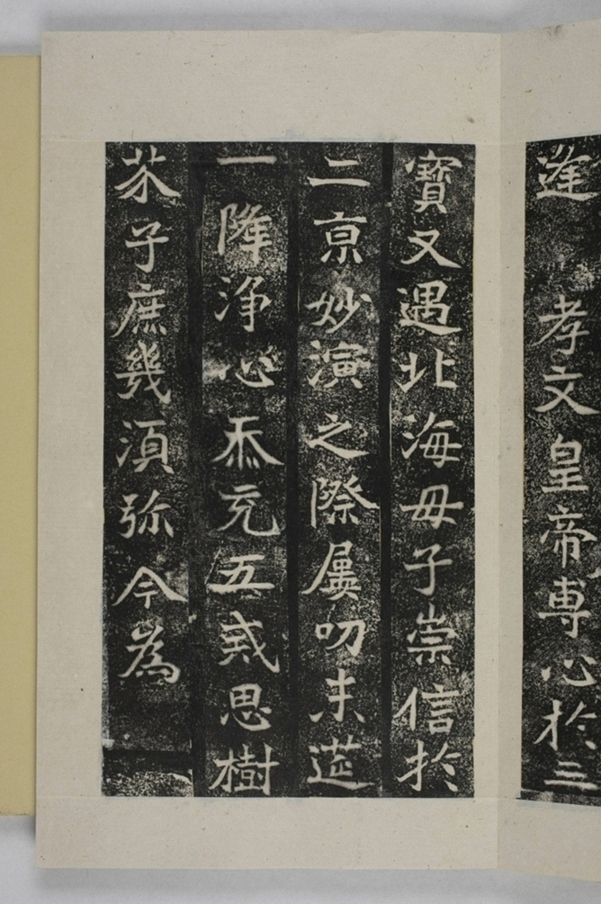 逢 孝文皇帝專心於三
寶又遇北海母子崇信於
二亰妙演之際屢叨末筵
一降淨心忝充五戒思樹
芥子庶幾須弥今為